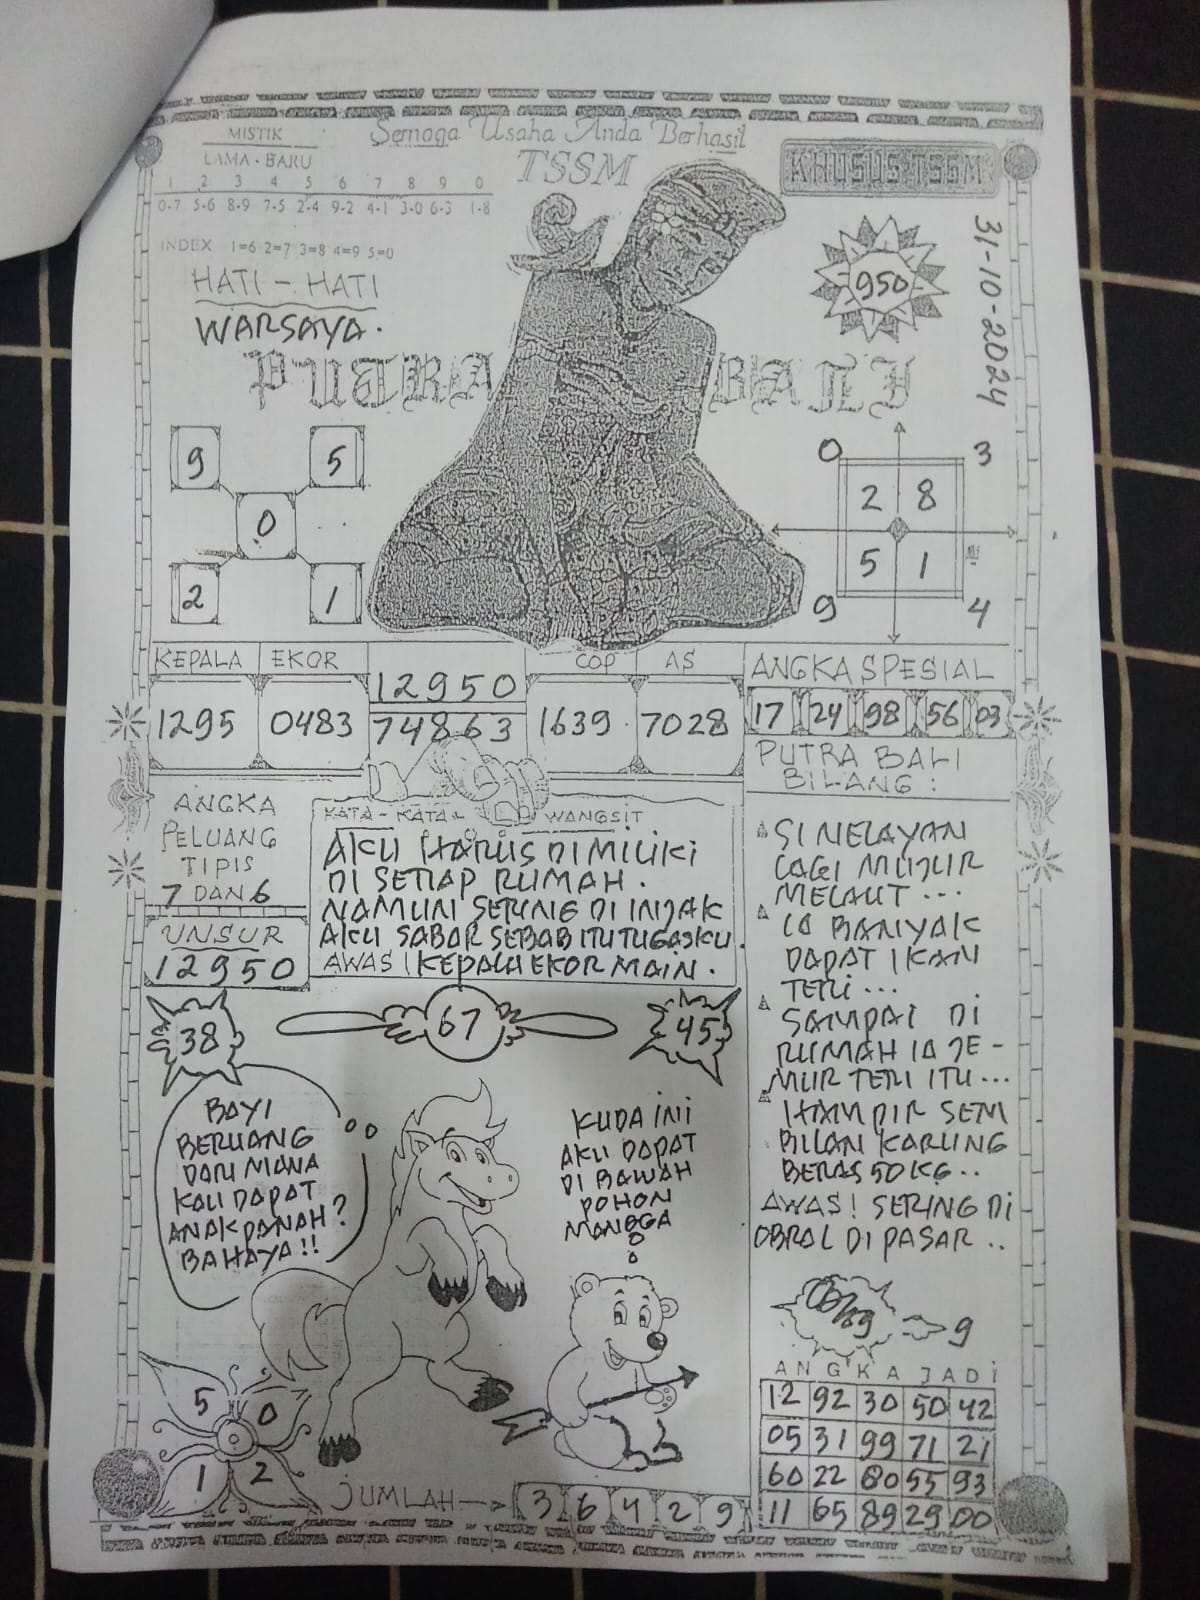 Semoga Usaha Anda Berhasil
TSSM
KHUSUS TSSM
MISTIK
LAMA - BARU
1 2 3 4 5 6 7 8 9 0
0-7 5-6 8-9 7-5 2-4 9-2 4-1 3-0 6-3 1-8
INDEX 1=6 2=7 3=8 4=9 5=0
HATI - HATI
WARSAYA.
950
31-10-2024
PUTRA BALI
9 5
0
2 1
0 3
2 8
5 1
9 4
KEPALA EKOR
1295 0483
12950
74863
COP AS
1639 7028
ANGKA SPESIAL
17 24 98 56 03
ANGKA
PELUANG
TIPIS
7 DAN 6
UNSUR
12950
KATA - KATA WANGSIT
AKU HARUS DIMILIKI
DI SETIAP RUMAH.
NAMUN SERING DI INJAK
AKU SABAR SEBAB ITU TUGASKU.
AWAS! KEPALA EKOR MAIN.
PUTRA BALI
BILANG :
SI NELAYAN
LAGI MUJUR
MELAUT ...
IA BANYAK
DAPAT IKAN
TERI ...
SAMPAI DI
RUMAH IA JE-
MUR TERI ITU ...
HAMPIR SEM
BILAN KARUNG
BERAS 50 KG..
AWAS! SERING DI
OBRAL DI PASAR ..
38
67
45
BAYI
BERUANG
DARI MANA
KAU DAPAT
ANAK PANAH?
BAHAYA!!
KUDA INI
AKU DAPAT
DI BAWAH
POHON
MANGGA
9
ANGKA JADI
12 92 30 50 42
05 31 99 71 21
60 22 80 55 93
11 65 89 29 00
5 0
1 2
JUMLAH 3 6 4 2 9